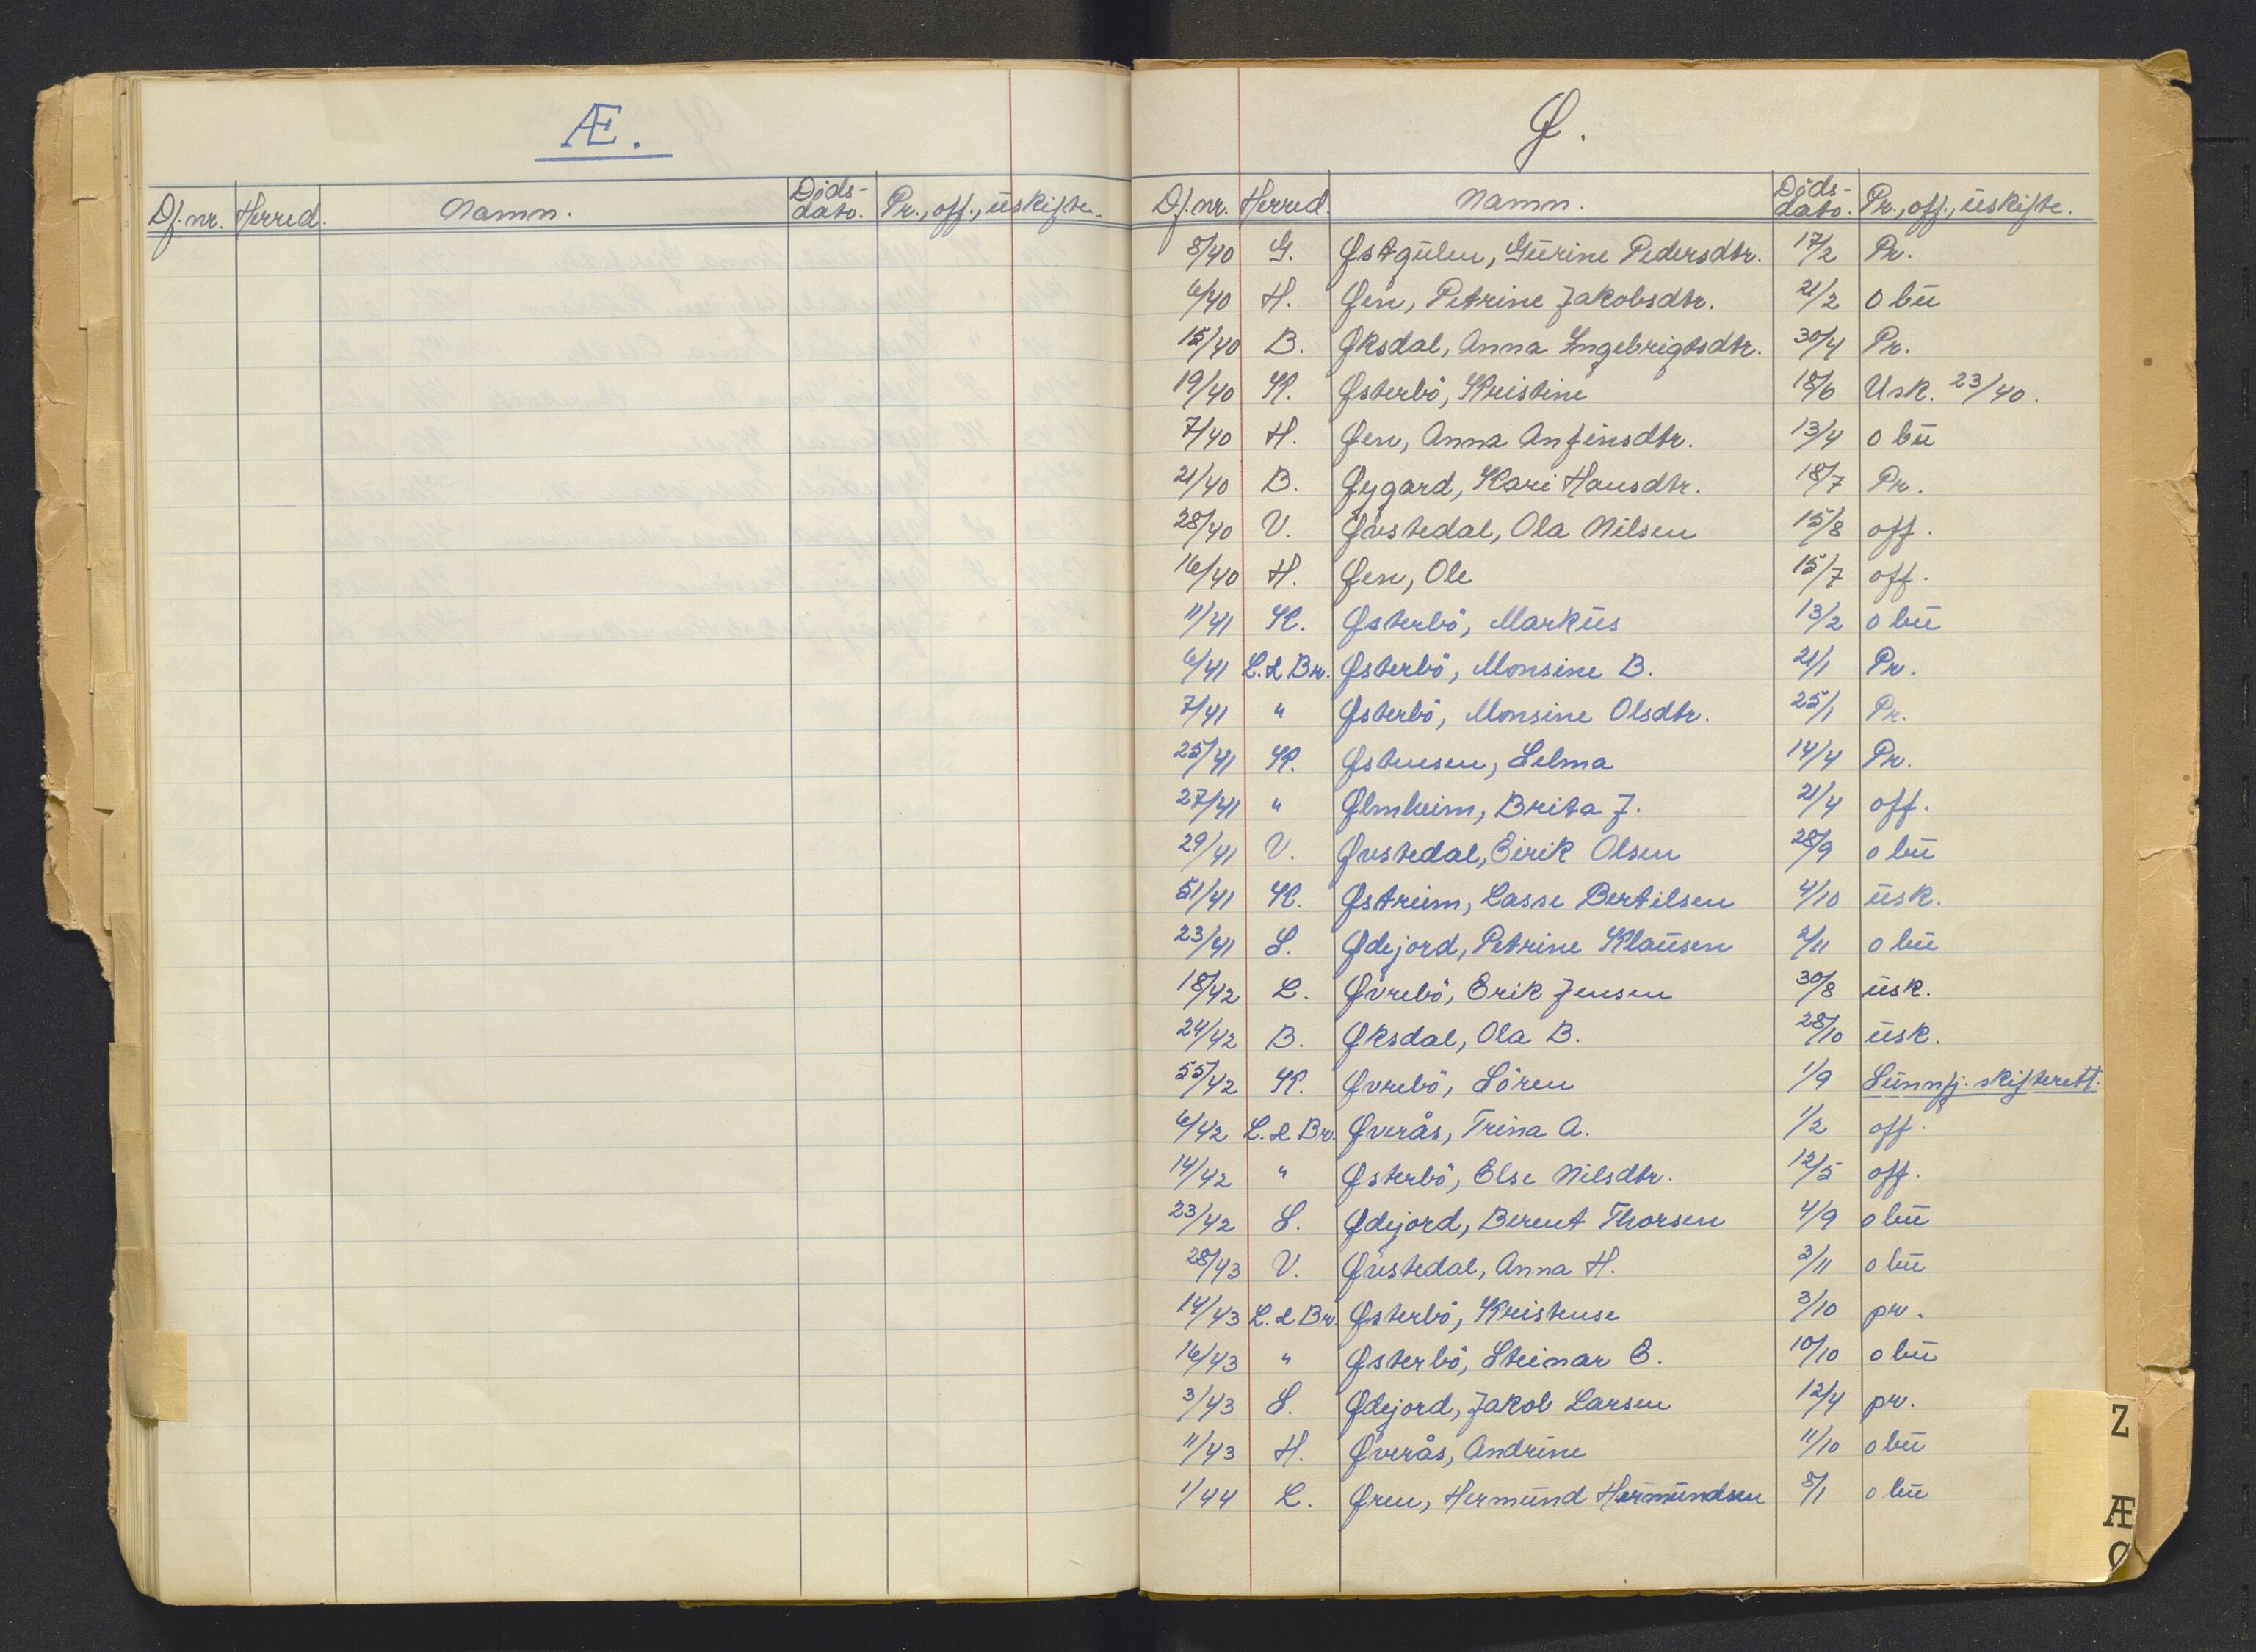 Æ.
Df.nr. Herred. Namn. Døds-dato. Pr., off., uskifte.
Ø.
Df.nr. Herred. Namn. Døds-dato. Pr., off., uskifte.
8/40 G. Østgulen, Gurine Pedersdtr. 17/2 Pr.
6/40 H. Øen, Petrine Jakobsdtr. 21/2 o bu
15/40 B. Øksdal, Anna Ingebrigtsdtr. 30/4 Pr.
19/40 K. Østerbö, Kristine 18/6 Usk. 23/40.
7/40 H. Øen, Anna Anfinsdtr. 13/4 o bu
21/40 B. Øygard, Kari Hansdtr. 18/7 Pr.
28/40 V. Øvstedal, Ola Nilsen 15/8 off.
16/40 H. Øen, Ole 15/7 off.
11/41 K. Østerbö, Markus 13/2 o bu
6/41 L. & Br. Østerbö, Monsine B. 21/1 Pr.
7/41 " Østerbö, Monsine Olsdtr. 25/1 Pr.
25/41 K. Østensen, Selma 14/4 Pr.
27/41 " Ølmheim, Brita J. 21/4 off.
29/41 V. Øvstedal, Eirik Olsen 28/9 o bu
51/41 K. Østreim, Lasse Bertilsen 4/10 usk.
23/41 S. Ødejord, Petrine Klausen 2/11 o bu
18/42 L. Øvrebö, Erik Jensen 30/8 usk.
24/42 B. Øksdal, Ola B. 28/10 usk.
55/42 K. Øvrebö, Sören 1/9 Sunnfj. skifterett.
6/42 L. & Br. Øverås, Trina A. 1/2 off.
14/42 " Østerbö, Else Nilsdtr. 12/5 off.
23/42 S. Ødejord, Berent Thorsen 4/9 o bu
28/43 V. Øvstedal, Anna H. 3/11 o bu
14/43 L. & Br. Østerbö, Kristense 3/10 pr.
16/43 " Østerbö, Steinar E. 10/10 o bu
3/43 S. Ødejord, Jakob Larsen 12/4 pr.
11/43 H. Øverås, Andrine 11/10 o bu
1/44 L. Øren, Hermund Hermundsen 8/1 o bu
Z
Æ
Ø